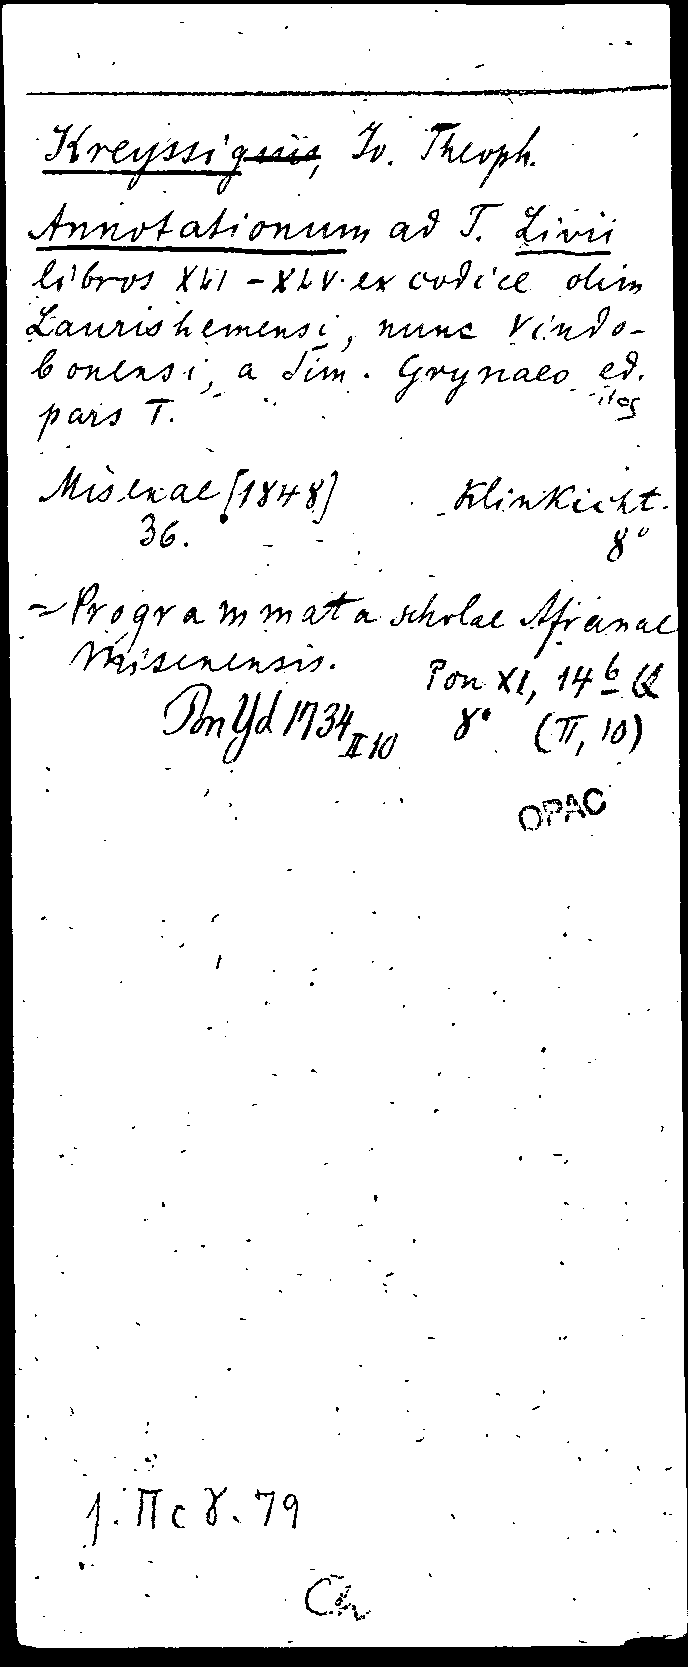 Kreyssigius, Io. Theoph.
Annotationum ad T. Livii
libros XLI - XLV. ex codice olim
Laurishemensi, nunc Vindo-
bonensi, a Sim. Grynaeo ed.
itos
pars I.
Misenae [1848] Klinkicht.
36. 8°
= Programmata scholae Afranae
Misenensis.
Pon XI, 14 b Q
Pon Yd 1734 II 10 8° (II, 10)
OPAC
1. II c 8. 79
Ch